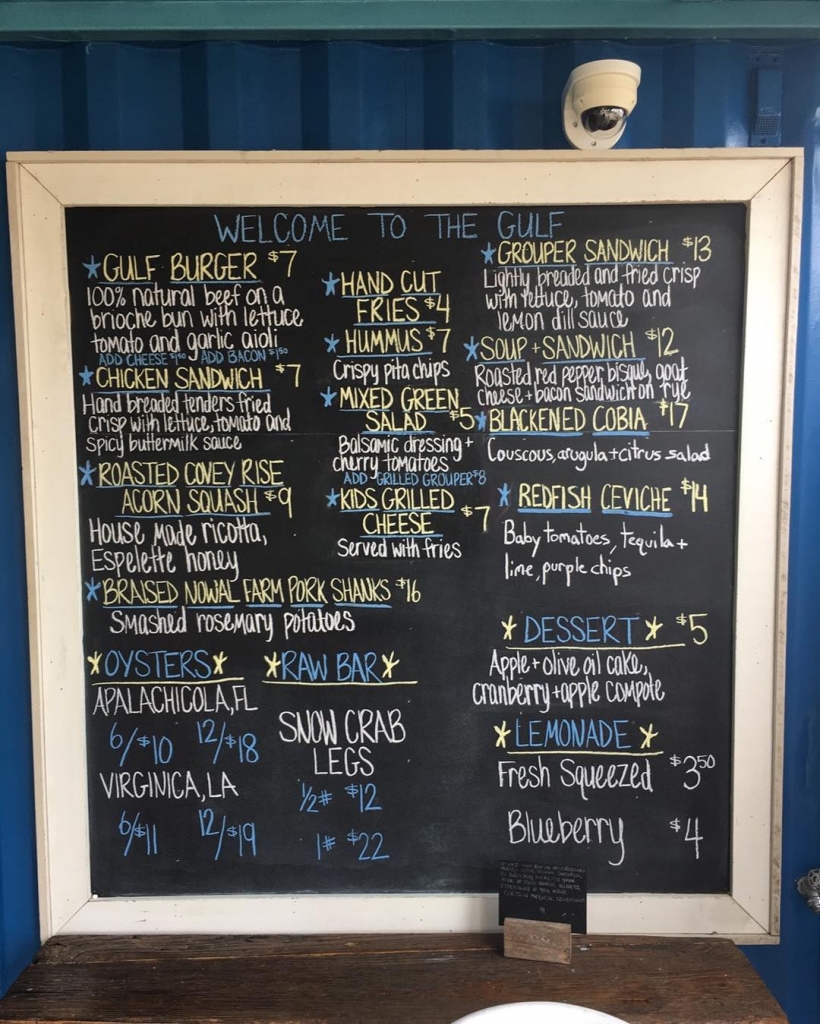 WELCOME TO THE GULF
GULF BURGER $7
100% natural beef on a
brioche bun with lettuce
tomato and garlic aioli
ADD CHEESE $1.50 ADD BACON $1.50
CHICKEN SANDWICH $7
Hand breaded tenders fried
crisp with lettuce, tomato and
spicy buttermilk sauce
ROASTED COVEY RISE
ACORN SQUASH $9
House made ricotta,
Espelette honey
BRAISED NOWAL FARM PORK SHANKS $16
Smashed rosemary potatoes
HAND CUT
FRIES $4
HUMMUS $7
Crispy pita chips
MIXED GREEN
SALAD $5
Balsamic dressing +
cherry tomatoes
ADD GRILLED GROUPER $8
KIDS GRILLED
CHEESE $7
Served with fries
GROUPER SANDWICH $13
Lightly breaded and fried crisp
with lettuce, tomato and
lemon dill sauce
SOUP + SANDWICH $12
Roasted red pepper bisque, goat
cheese + bacon sandwich on rye
BLACKENED COBIA $17
Couscous, arugula + citrus salad
REDFISH CEVICHE $14
Baby tomatoes, tequila +
lime, purple chips
OYSTERS
APALACHICOLA, FL
6/$10 12/$18
VIRGINICA, LA
6/$11 12/$19
RAW BAR
SNOW CRAB
LEGS
1/2# $12
1# $22
DESSERT $5
Apple + olive oil cake,
cranberry + apple compote
LEMONADE
Fresh Squeezed $3.50
Blueberry $4